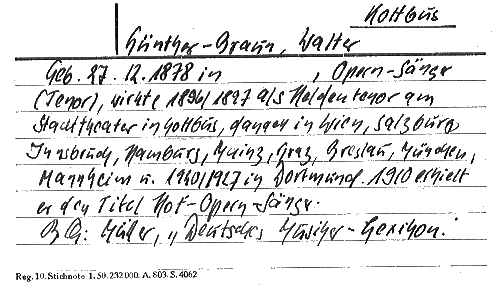 Kottbus
Günther-Braun, Walter
Geb. 27. 12. 1878 in , Opern-Sänger
(Tenor), wirkte 1896/1897 als Heldentenor am
Stadttheater in Kottbus, danach in Wien, Salzburg
Innsbruck, Hamburg, Mainz, Graz, Breslau, München,
Mannheim u. 1920/1927 in Dortmund. 1910 erhielt
er den Titel Hof-Opern-Sänger.
Müller, „Deutsches Musiker-Lexikon.
Reg. 10. Stichnote 1. 50. 232 000. A. 803. S. 4062